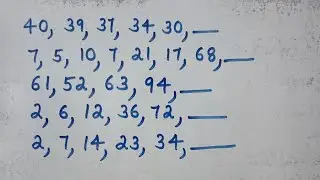 40, 39, 37, 34, 30, __
7, 5, 10, 7, 21, 17, 68, __
61, 52, 63, 94, __
2, 6, 12, 36, 72, __
2, 7, 14, 23, 34, __